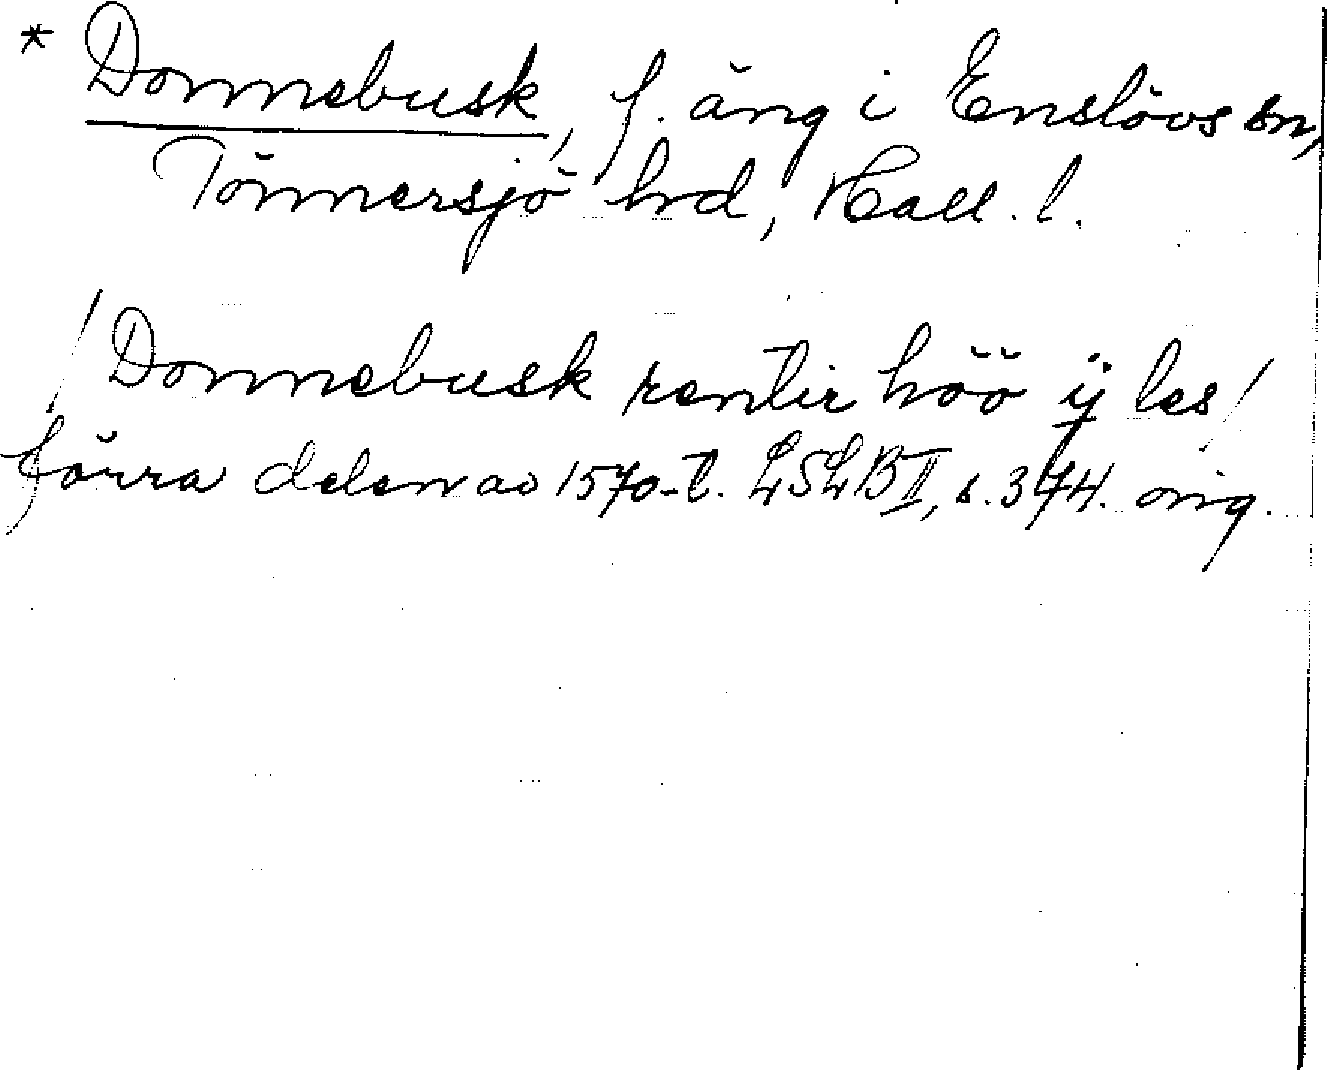 * Donnebusk, f. äng i Enslövs sn,
Tönnersjö hd, Hall. l.
/ Donnebusk rentir höö ij les /
förra delen av 1570-t. LSLB II, s. 374. orig.